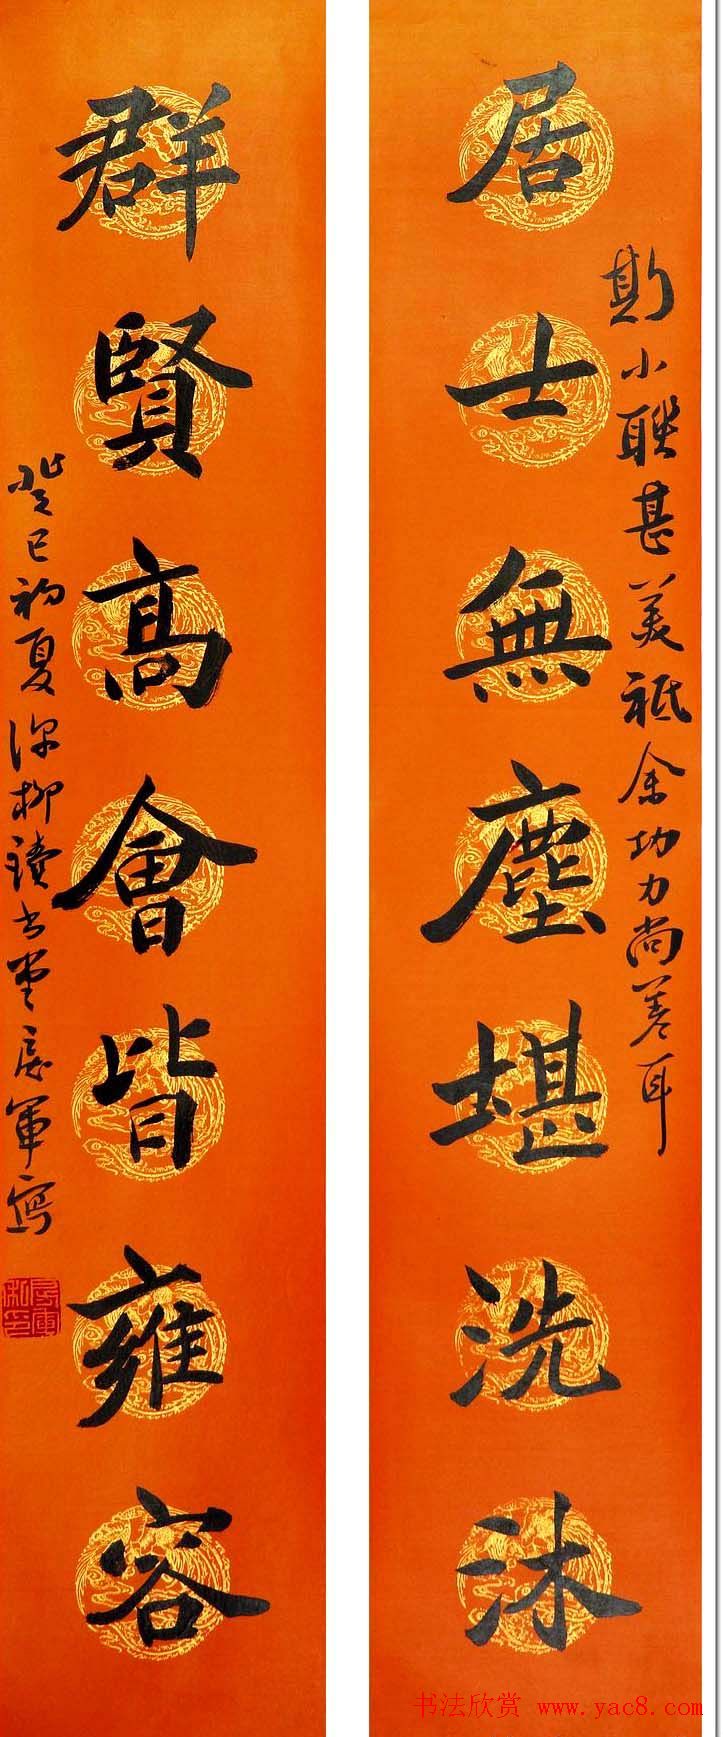 斯小聯甚美祗余功力尚差耳
居士無塵堪洗沐
群賢高會皆雍容
癸巳初夏深柳讀書堂軍寫
书法欣赏 www.yac8.com